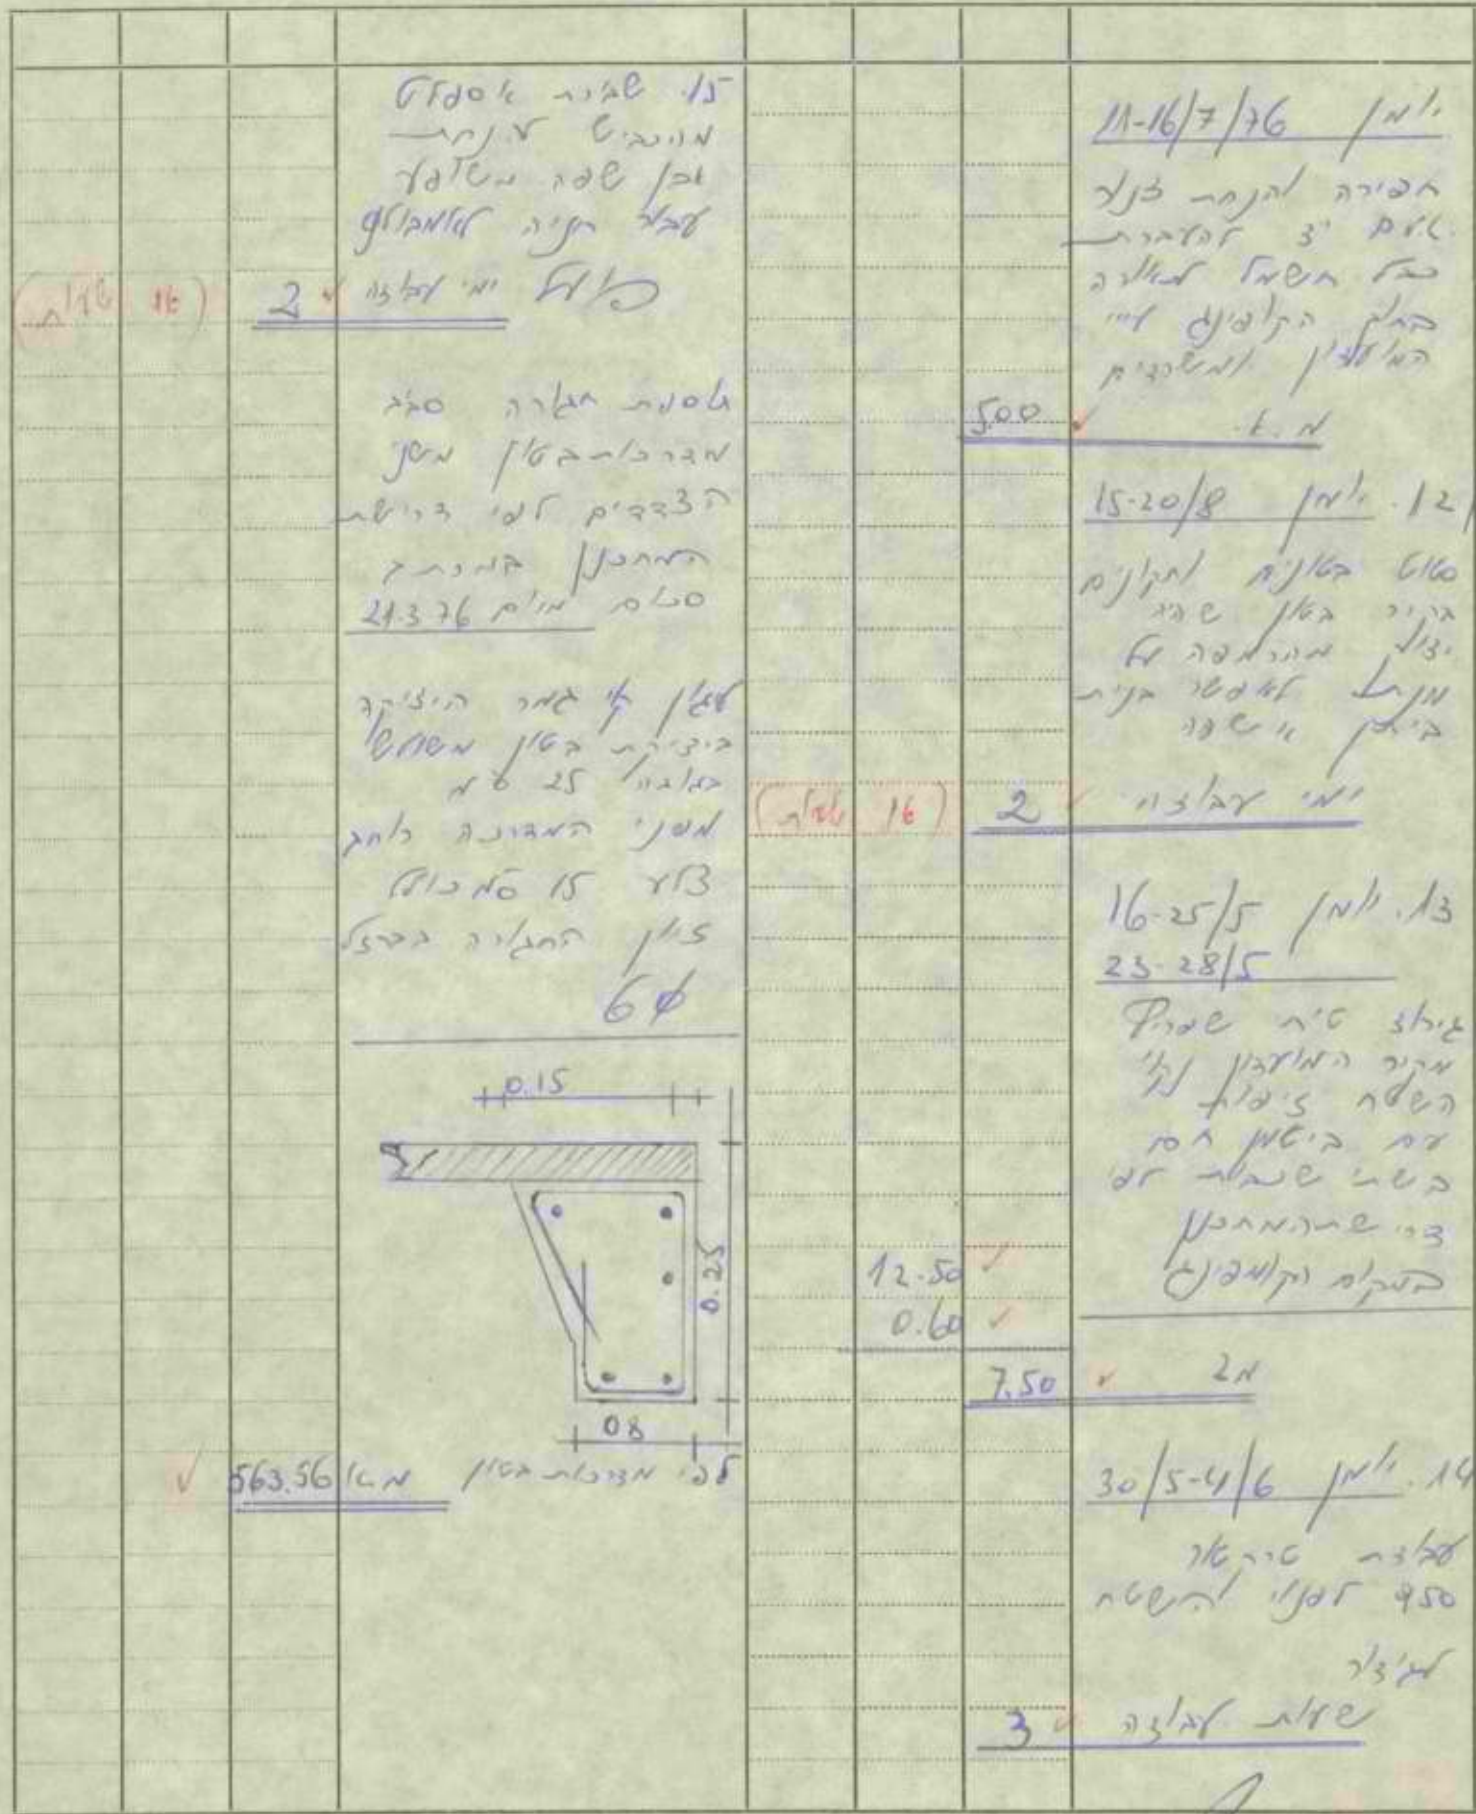 יומן 11-16/7/76
חפירה והנחת צנור
להעברת
כבל חשמל לתאורה
הקופינג ע"י
המועדון ומשרדים
מ.א. 5.00
12. יומן 15-20/8
סתות בטונים ותקונים
בקיר בטון שהיה
יצוק מהרמפה על
מנת לאפשר בנית
אי שפה
ימי עבודה 2 (16 שעות)
13. יומן 16-25/5
23-28/5
טיח שפריץ
מקיר המועדון נקוי
השטח זיפות
עם ביטומן חם
בשתי שכבות לפי
דרישת המתכנן
במקום הקופינג
12.50
0.60
מ2 7.50
14. יומן 30/5-4/6
עבודת טרקטור
950 לפנוי השטח
לגידור
שעות עבודה 3
15. שבירת אספלט
מהכביש
אבן שפה משופע
עבור חניה לאמבולנס
פועל ימי עבודה 2 (16 שעות)
תוספת חגורה סביב
מדרכות בטון משני
הצדדים לפי דרישת
המתכנן במכתב
סכום מיום 21.3.76
גמר היציקה
ביציקת בטון משולש
בגובה 25 ס"מ
מפני המדרכה רוחב
צלע 15 ס"מ כולל
זיון החגורה בברזל
6 ϕ
0.15
0.25
08
לפי מדרכות בטון מ.א 563.56